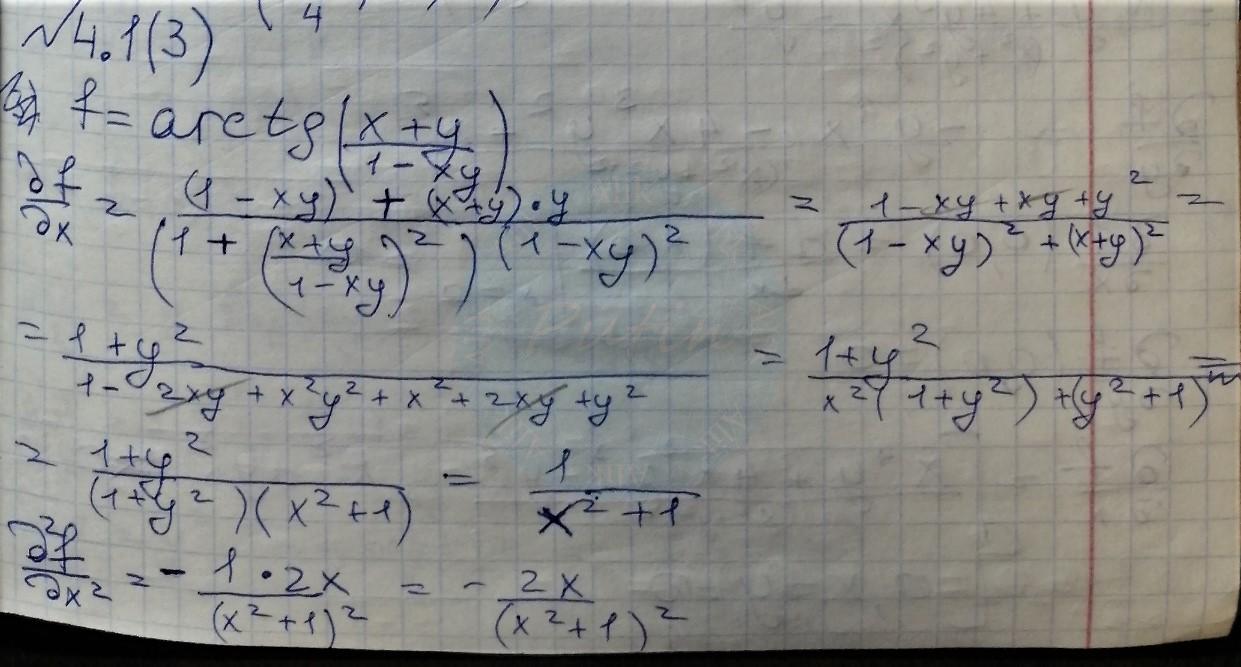 4
√4.1(3)
f = arctg((x+y)/(1-xy))
∂f/∂x = ((1-xy) + (x+y)·y)/((1+((x+y)/(1-xy))²)(1-xy)²) = (1-xy+xy+y²)/((1-xy)²+(x+y)²) =
= (1+y²)/(1-2xy+x²y²+x²+2xy+y²) = (1+y²)/(x²(1+y²)+(y²+1)) =
= (1+y²)/((1+y²)(x²+1)) = 1/(x²+1)
∂²f/∂x² = - (1·2x)/(x²+1)² = - 2x/(x²+1)²
Putin